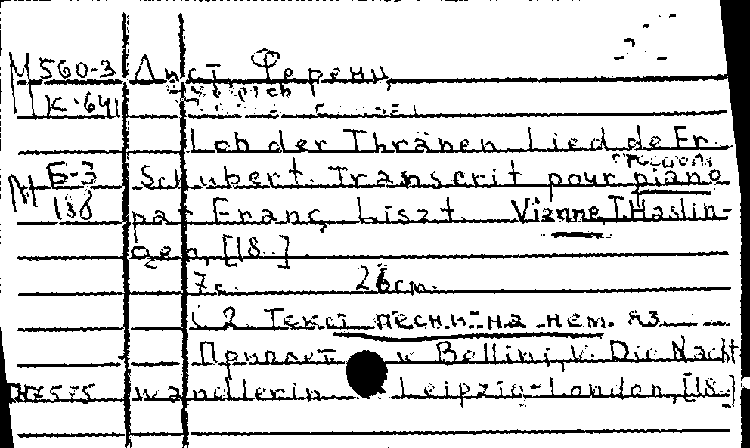 М 560-3 Лист, Ференц
К-641
Lob der Thränen Lied de Fr.
М Б-3 Schubert. Transcrit pour piano
138 par Franç. Liszt. Vienne T. Haslin-
ger, [18..]
7 с. 26 cm.
С. 2. Текст песни на нем. яз.
Приплет к Bellini, V. Die Nacht
wandlerin. Leipzig-London, [18..]